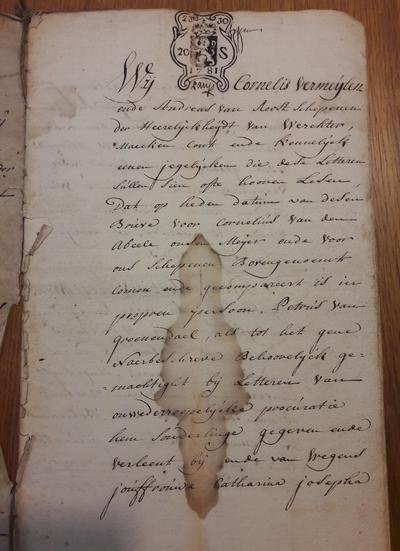 20 30
20 S
1781
Wij Cornelis Vermeijlen
ende Andreas van Roost Schepenen
der Heerelijckheijdt van Werchter,
Maecken Cont ende Kennelijck
eenen jegelijcken die dese Letteren
sullen Sien ofte hooren Lesen,
Dat op heden datum van desen
Brieve voor Cornelius van den
Abeele onsen Meijer ende voor
ons Schepenen Bovengenoemt
comen ende gecompareert is in
propren persoon Petrus van
groenendael, als tot het gene
Naerbeschreve Behoorelijck ge-
machtight bij Letteren van
onwederroepelijcke procuratie
hem Sonderlinge gegeven ende
verleent bij ende van Wegens
jouffrouwe Catharina josepha